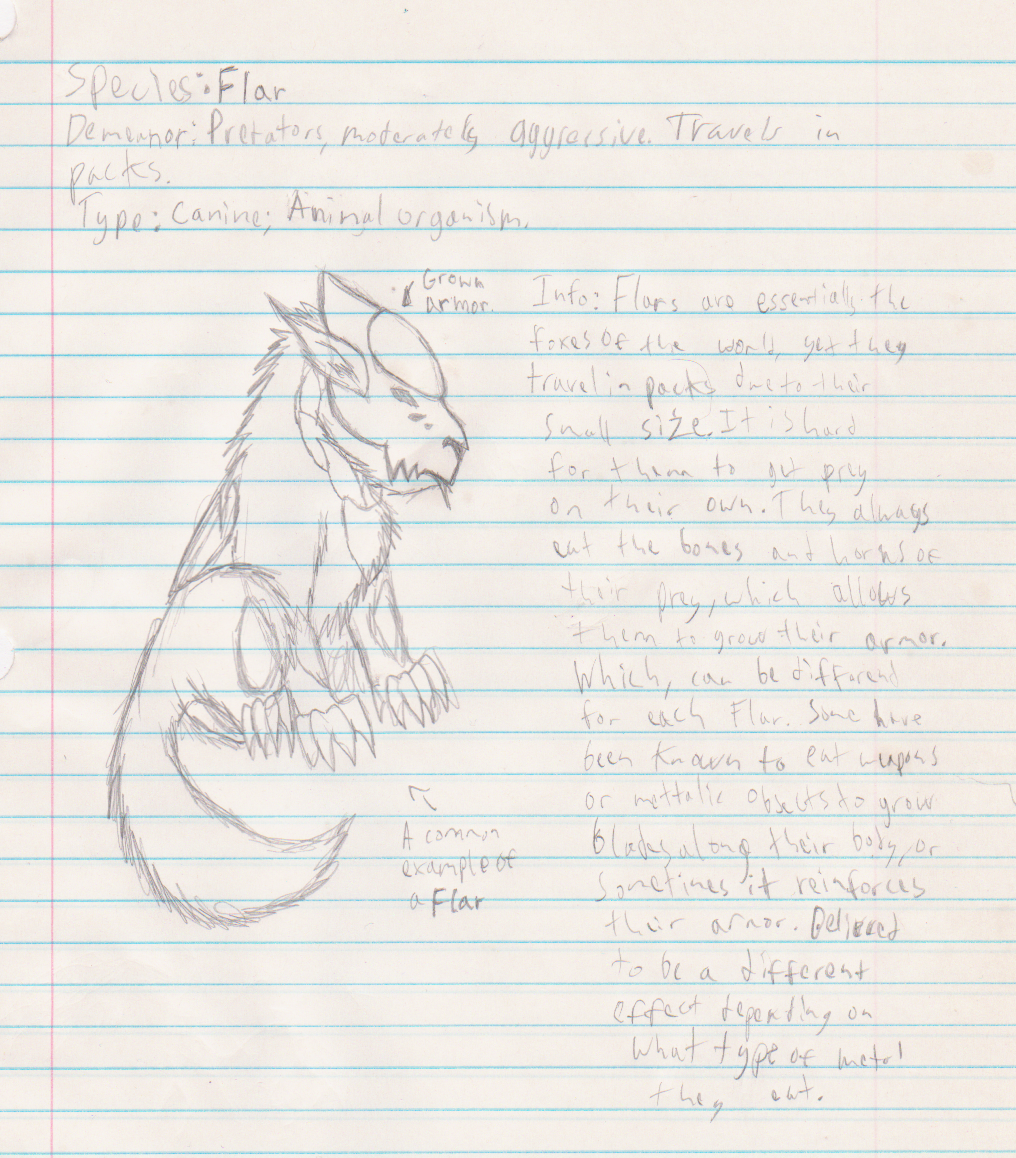 Species: Flar
Demeanor: Pretators, moderately aggressive. Travels in
packs.
Type: Canine; Animal organism.
Grown
armor.
Info: Flars are essentially the
foxes of the world, yet they
travel in packs due to their
small size. It is hard
for them to get prey
on their own. They always
eat the bones and horns of
their prey, which allows
them to grow their armor.
Which, can be different
for each Flar. Some have
been known to eat weapons
or mettalic objects to grow
blades along their body, or
sometimes it reinforces
their armor. Belived
to be a different
effect depending on
what type of metal
they eat.
A common
example of
a Flar